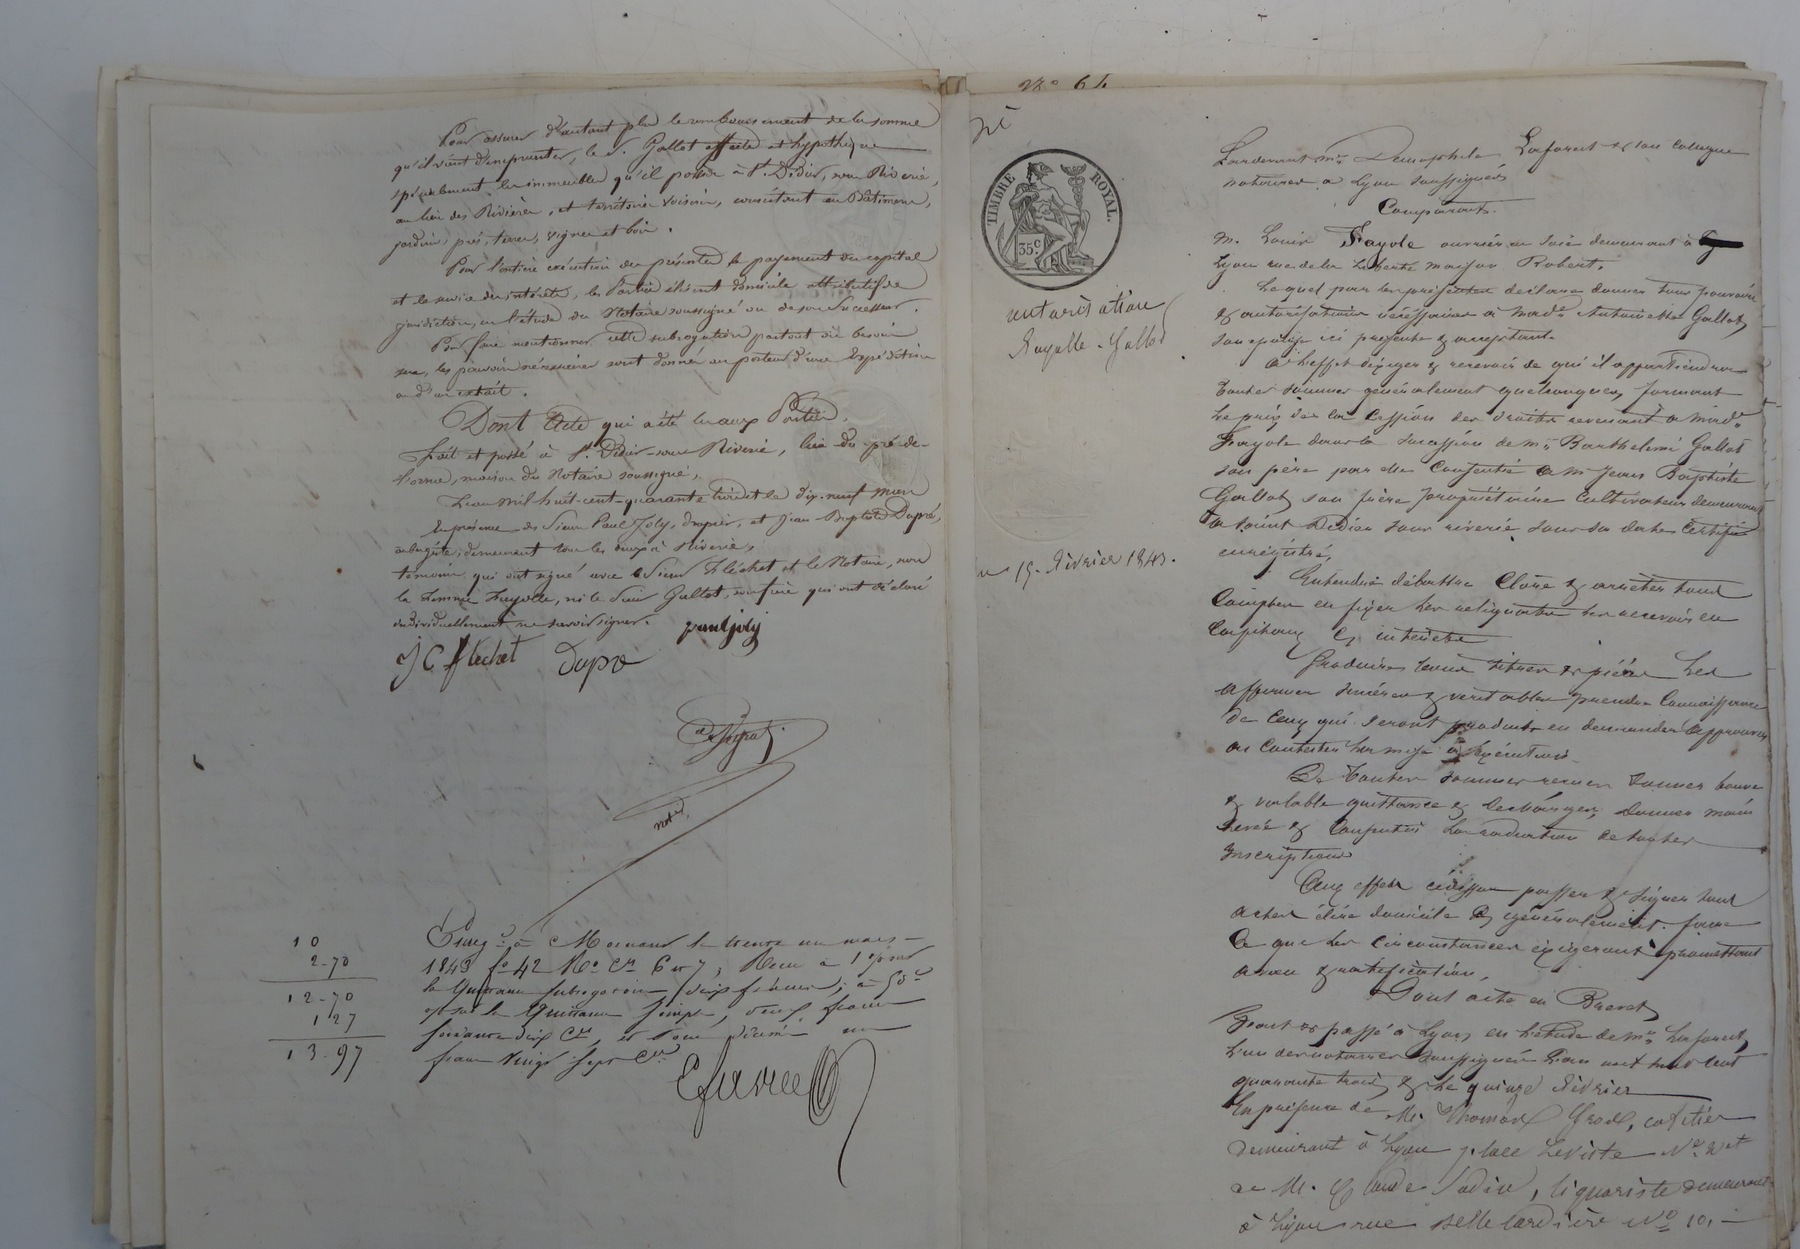 Pour assurer d'autant plus le remboursement de la somme
qu'il vient d'emprunter, le Sr. Gallot affecte et hypothèque
spécialement les immeubles qu'il possède à St. Didier, sous Riverie,
au lieu des Rivières, et territoires voisins, consistant en Bâtiments,
jardin, prés, terres, vignes et bois.
Pour l'entière exécution des présentes le payement du capital
et le service des intérêts, les Parties élisent domicile attributif de
juridiction, en l'étude du Notaire soussigné ou de son Successeur.
Pour faire mentionner cette subrogation partout où besoin
sera, les pouvoirs nécessaires sont donnés au porteur d'une Expédition
ou d'un extrait.
Dont Acte qui a été lu aux Parties.
Fait et passé à St. Didier-sous Riverie, lieu du pré-de-
l'orme, maison du Notaire soussigné,
L'an mil huit-cent-quarante trois et le dix-neuf mars
En présence des Sieurs Paul Joly, drapier, et Jean Baptiste Dupré,
aubergiste, demeurant tous les deux à Riverie,
témoins qui ont signé avec le Sieur Fléchet et le Notaire, non
la femme Fayolle, ni le Sieur Gallot, son frère qui ont déclaré
individuellement ne savoir signer.
paul joly
J C Flechet Dupré
not.
10
2-70
12-70
1 27
13-97
Enreg.é à Mornant le trente un mars
1843 fo 42 Ro Cs 6 et 7, Reçu à 1 % sur
la Quittance subrogatoire dix francs; à 50c
et sur la Quittance simple, deux francs
soixante dix Cs, et pour décime un
franc vingt sept Cs
No 64
TIMBRE ROYAL.
35c.
autorisation
Fayolle-Gallot
du 15 février 1843.
Pardevant Me Demophile Laforest & son Collegue
notaires a Lyon soussignés
Comparant.
M. Louis Fayole ouvrier en soie demeurant à
Lyon rue de la Liberté maison Robert.
Lequel par les présentes déclare donner tous pouvoirs
& autorisations nécessaires à made Antoinette Gallot
son epouse ici présente & acceptante
A l'effet d'exiger & recevoir de qui il appartiendra
toutes sommes généralement quelconques, formant
le prix de la Cession des droits revenant a made
Fayole dans la succession de mr Barthelemi Gallot
son père par elle Consentie a mr Jean Baptiste
Gallot son frère propriétaire Cultivateur demeurant
a saint Didier sous riverie sous sa date Certifié
enregistré,
Entendre débattre Clore & arrêter tous
Comptes en fixer les reliquats les recevoir en
Capitaux & intérêts
Produire tous titres & pièces les
affirmer sincères & veritables prendre Connaissance
de Ceux qui seront produits en demander approuver
ou Contester les mise à exécution.
De toutes sommes recues donner bonne
& valable quittance & décharge, donner main
levée & Consentir la radiation de toutes
inscriptions
Aux effets ci dessus passer & signer tous
actes élire domicile & généralement faire
Ce que les Circonstances exigeront promettant
aveu & ratification,
Dont acte en Brevet
Fait & passé à Lyon, en l'étude de me Laforest,
l'un des notaires soussignés l'an mil huit cent
quarante trois, & le quinze février
En présence de M. Thomas Grod, cafetier
demeurant à Lyon place Leviste No 2 et
de M. Claude Sadin, liquoriste demeurant
à Lyon rue Belle Cordière No 10, —